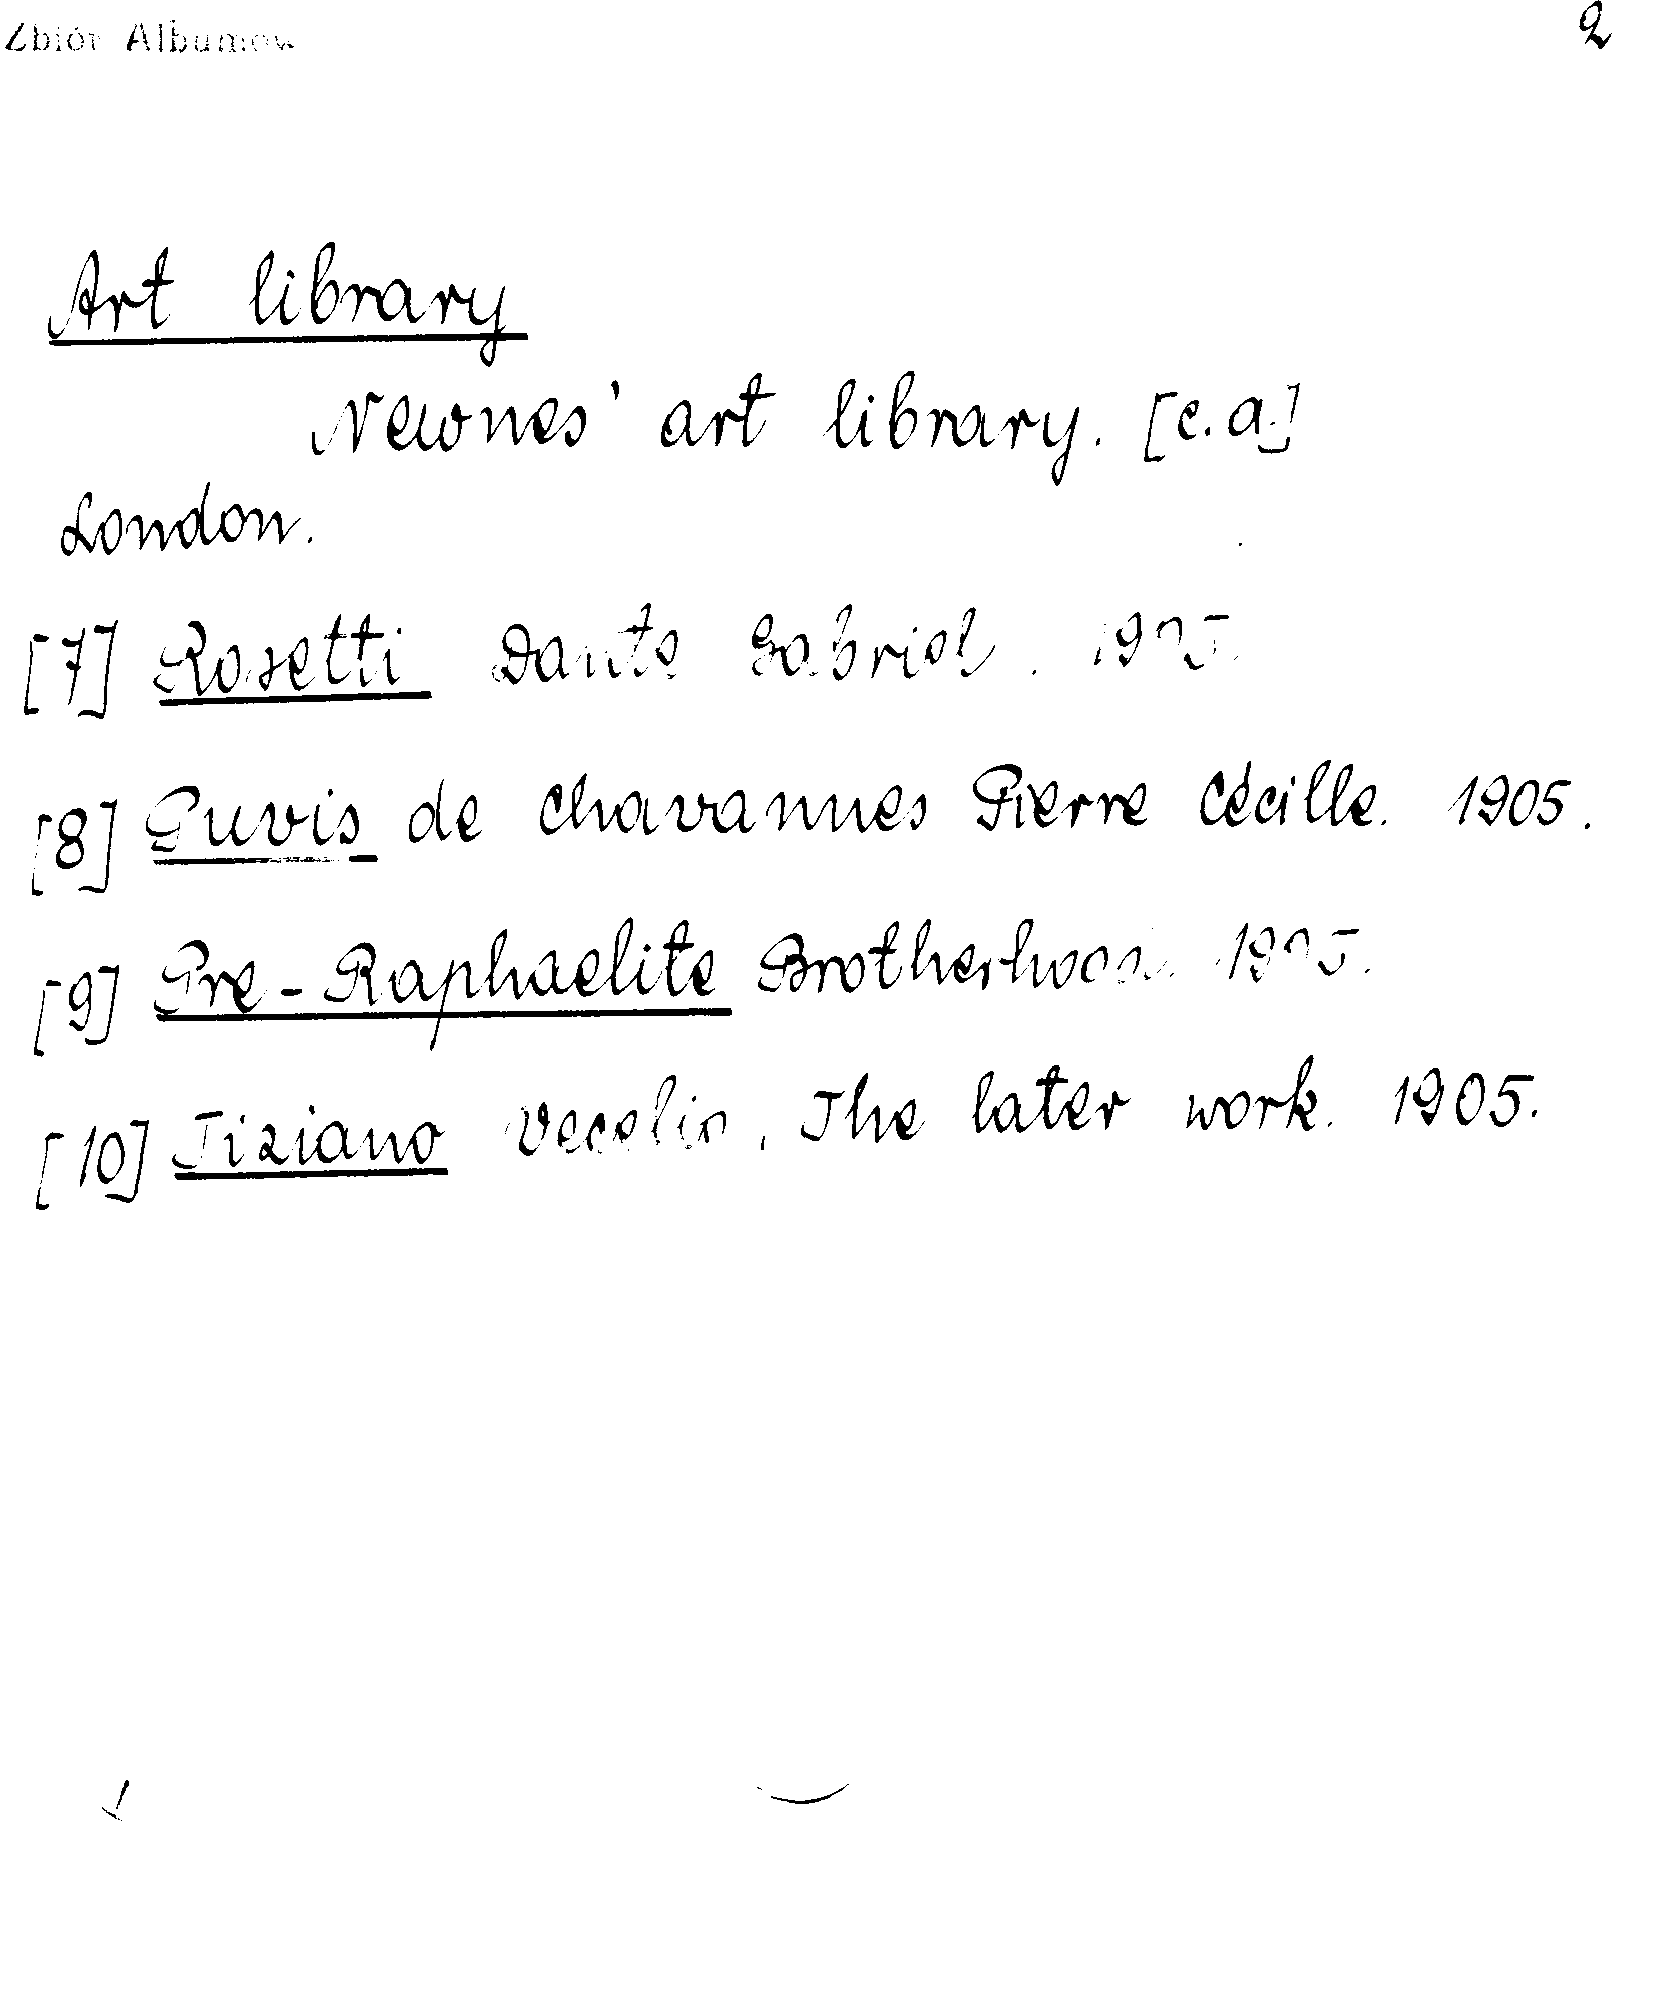 Zbiór Albumów
2
Art library
Newnes' art library. [c.a.]
London.
[7] Rosetti Dante Gabriel. 1905.
[8] Puvis de Chavannes Pierre Cécille. 1905.
[9] Pre-Raphaelite Brotherhood. 1905.
[10] Tiziano Vecelio. The later work. 1905.